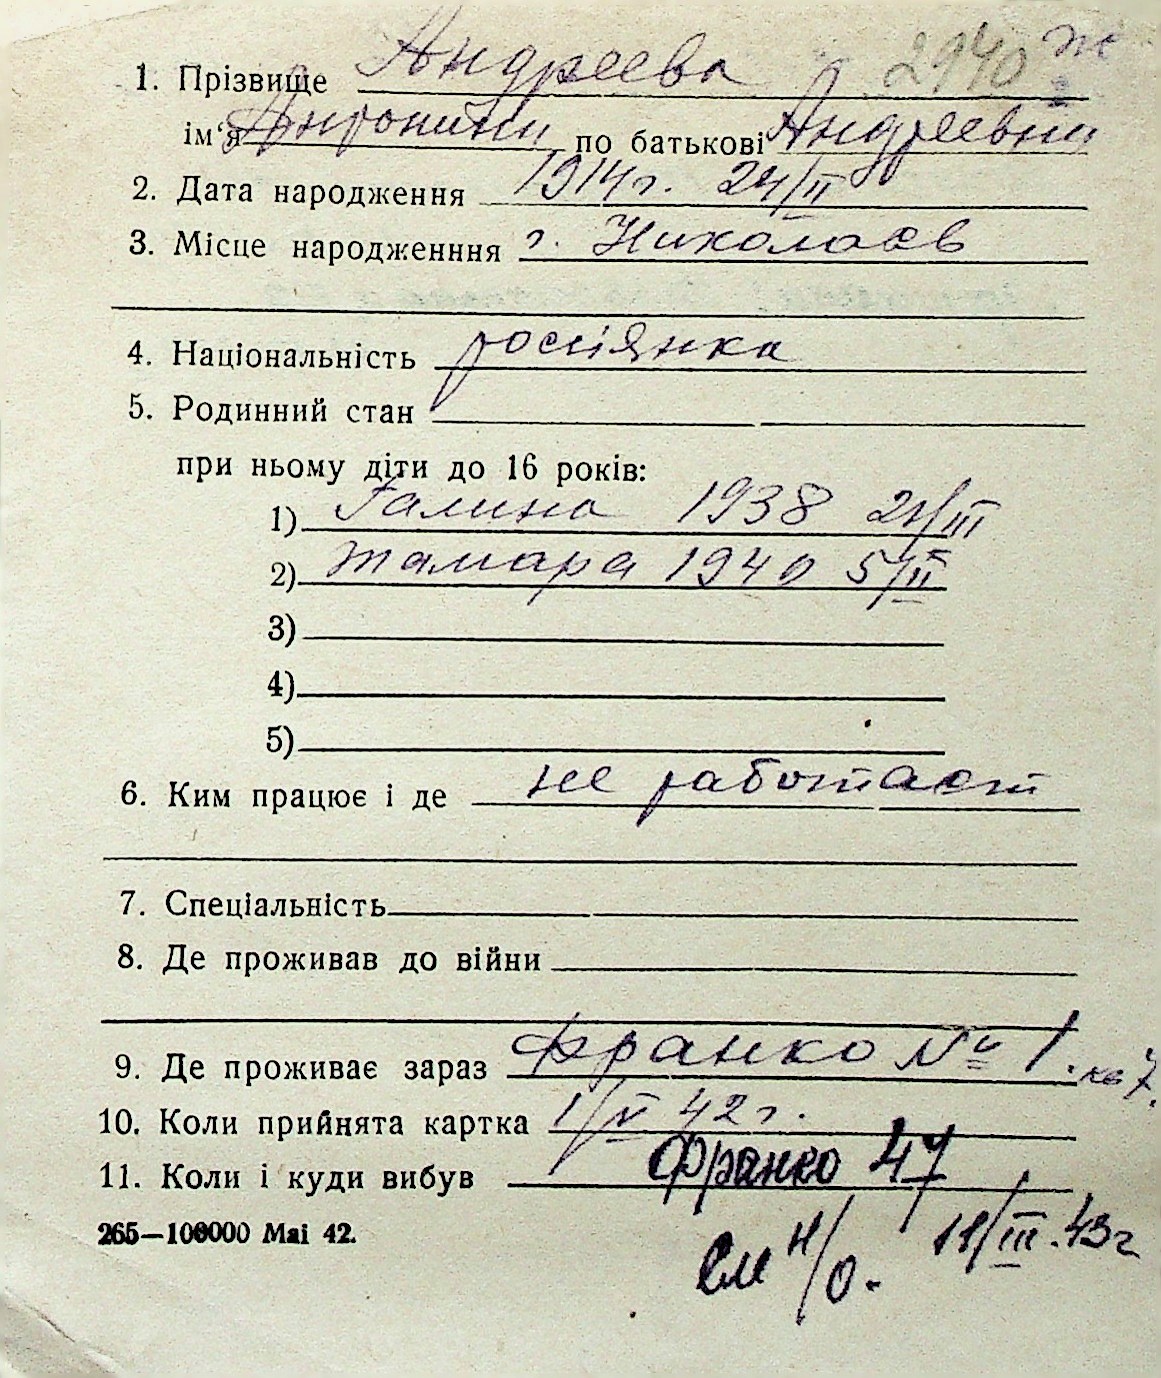 1. Прізвище Андреева 2940 ж
ім'я Антонина по батькові Андреевна
2. Дата народження 1914г. 24/II
3. Місце народженння г. Николаев
4. Національність росіянка
5. Родинний стан
при ньому діти до 16 років:
1) Галина 1938 21/III
2) Тамара 1940 5/II
3)
4)
5)
6. Ким працює і де не работает
7. Спеціальність
8. Де проживав до війни
9. Де проживає зараз Франко № 1. кв 7.
10. Коли прийнята картка 1/V 42г.
11. Коли і куди вибув Франко 47
265—100000 Маі 42. 11/III. 43г
См н/о.